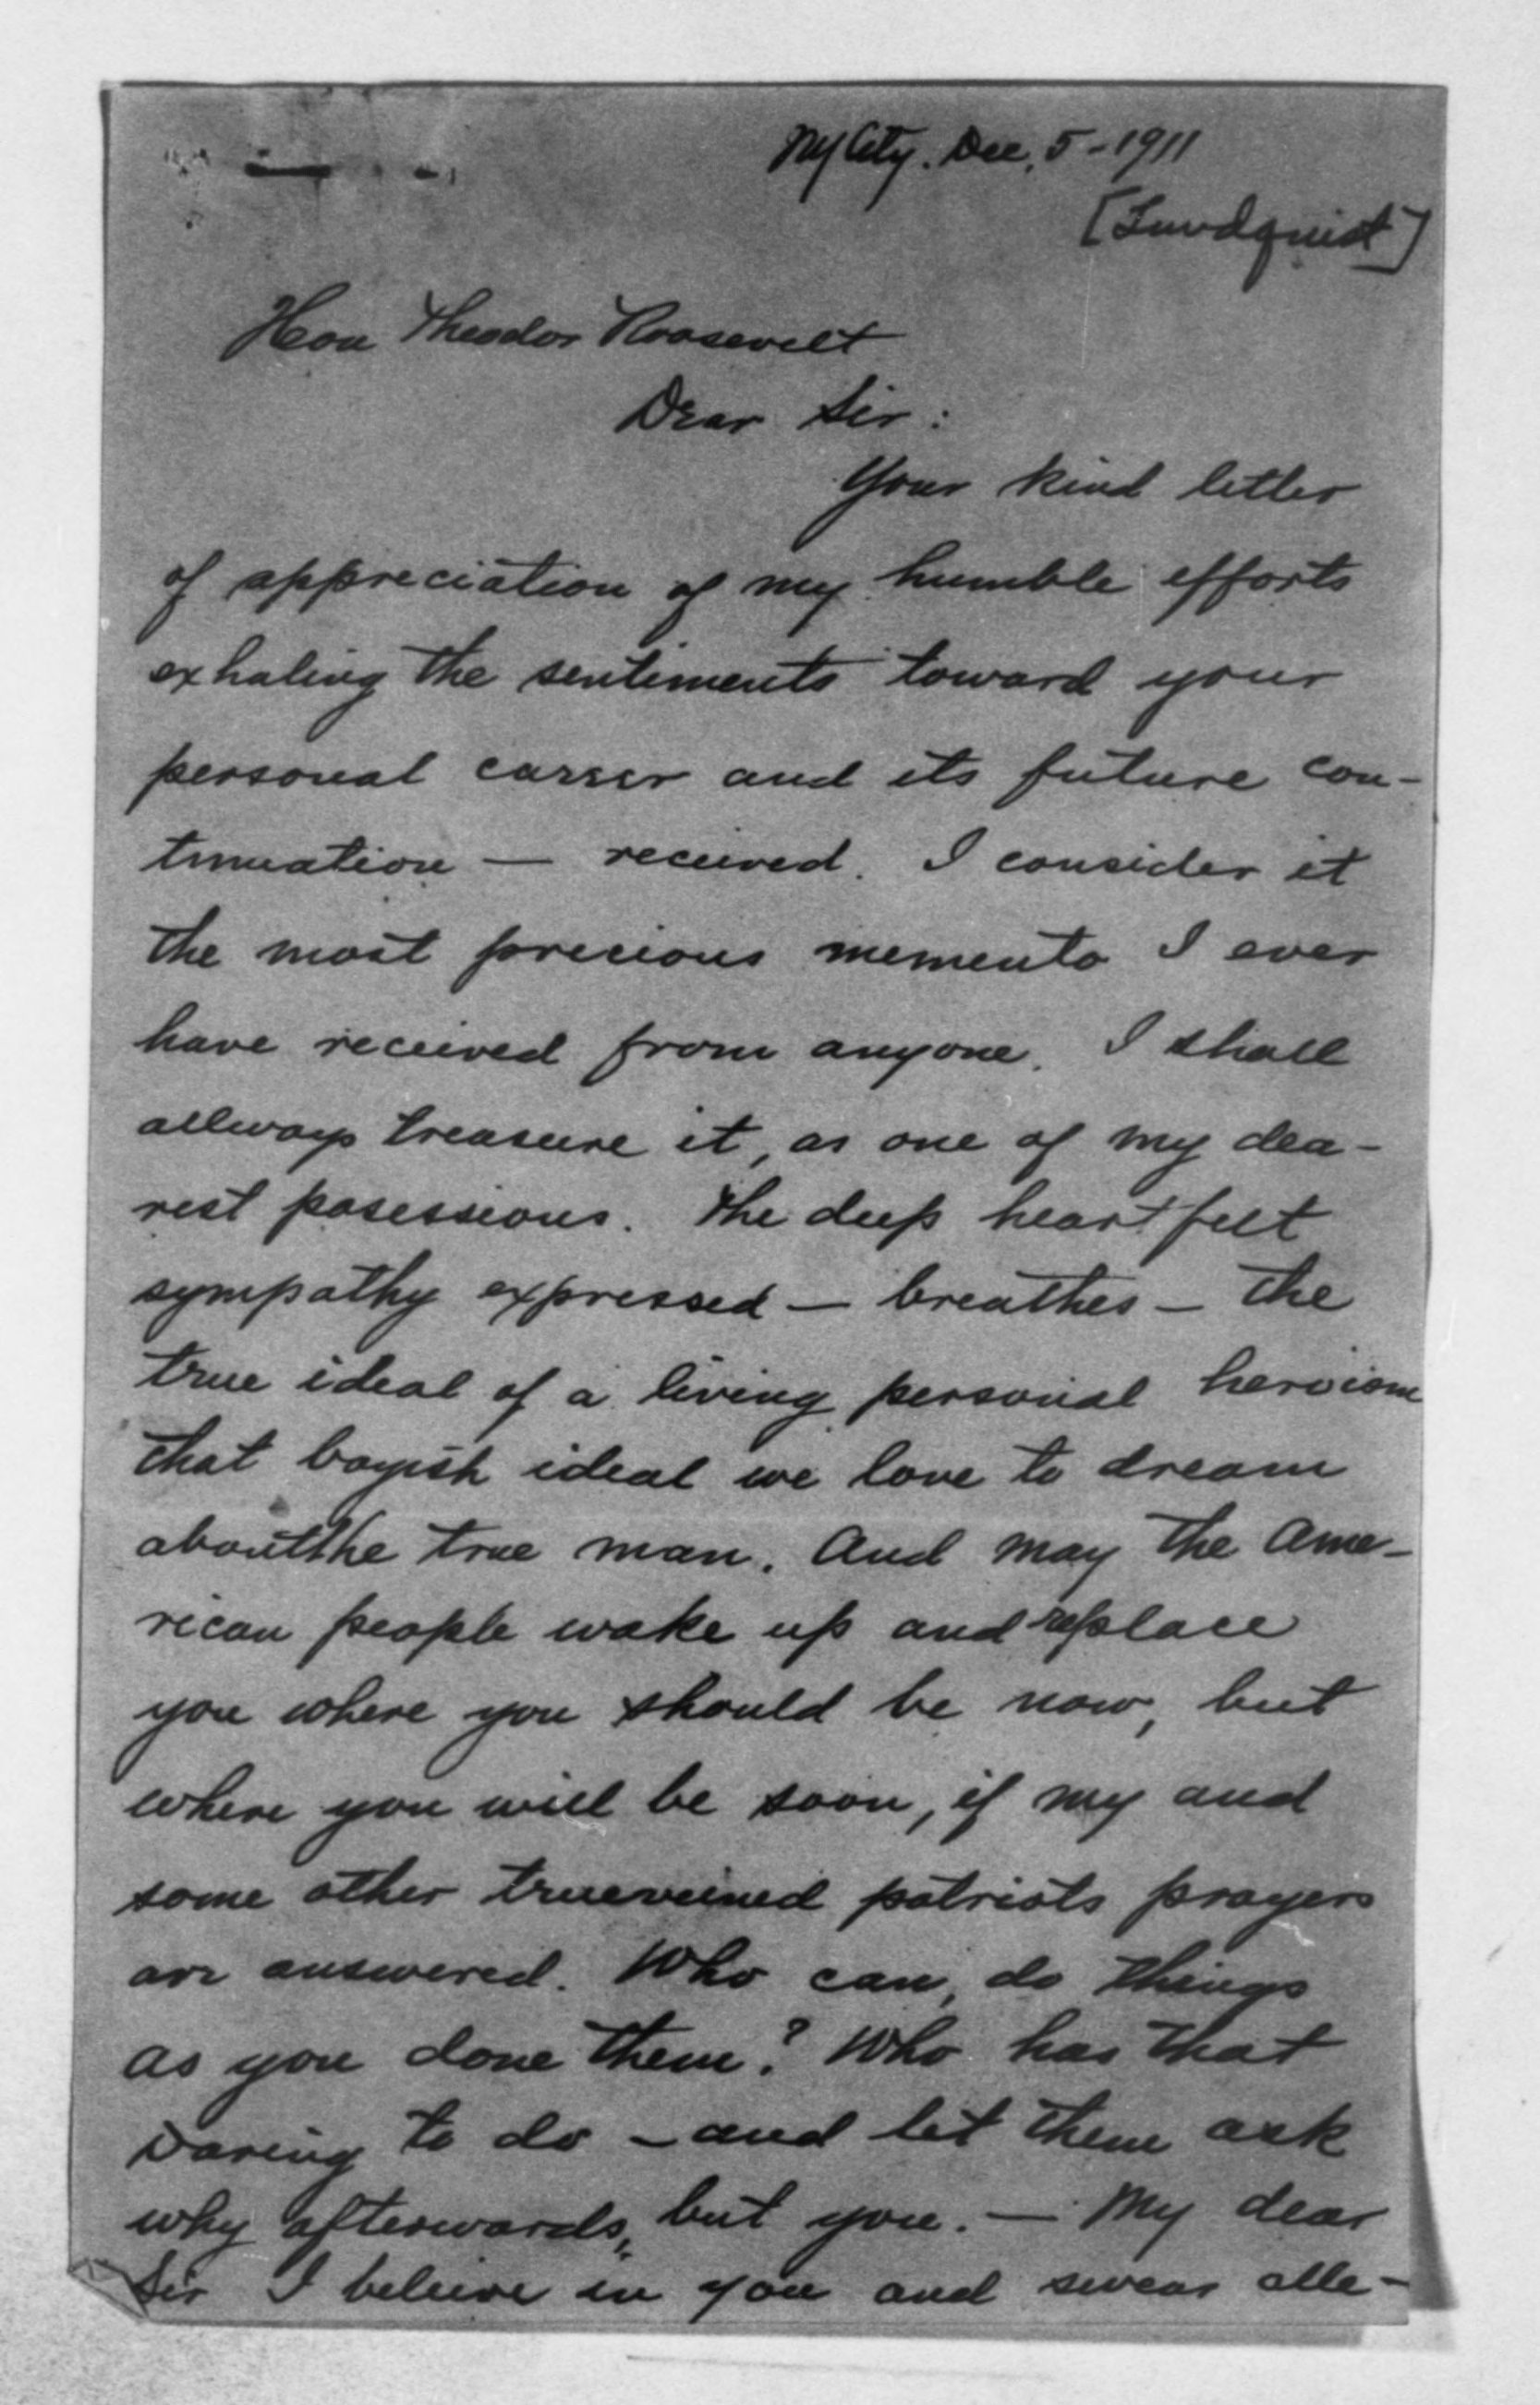 NY City. Dec. 5-1911
[Lundquist]
Hon Theodor Roosevelt
Dear Sir:
Your kind letter
of appreciation of my humble efforts
exhaling the sentiments toward your
personal career and its future con-
tinuation — received. I consider it
the most precious memento I ever
have received from anyone. I shall
allways treasure it, as one of my dea-
rest posessions. The deep heartfelt
sympathy expressed — breathes — the
true ideal of a living personal heroism
that boyish ideal we love to dream
about the true man. And may the Ame-
rican people wake up and replace
you where you should be now, but
where you will be soon, if my and
some other trueveined patriots prayers
are answered. Who can, do things
as you done them? Who has that
Daring to do — and let them ask
why afterwards, but you. — My dear
Sir I beleive in you and swear alle-